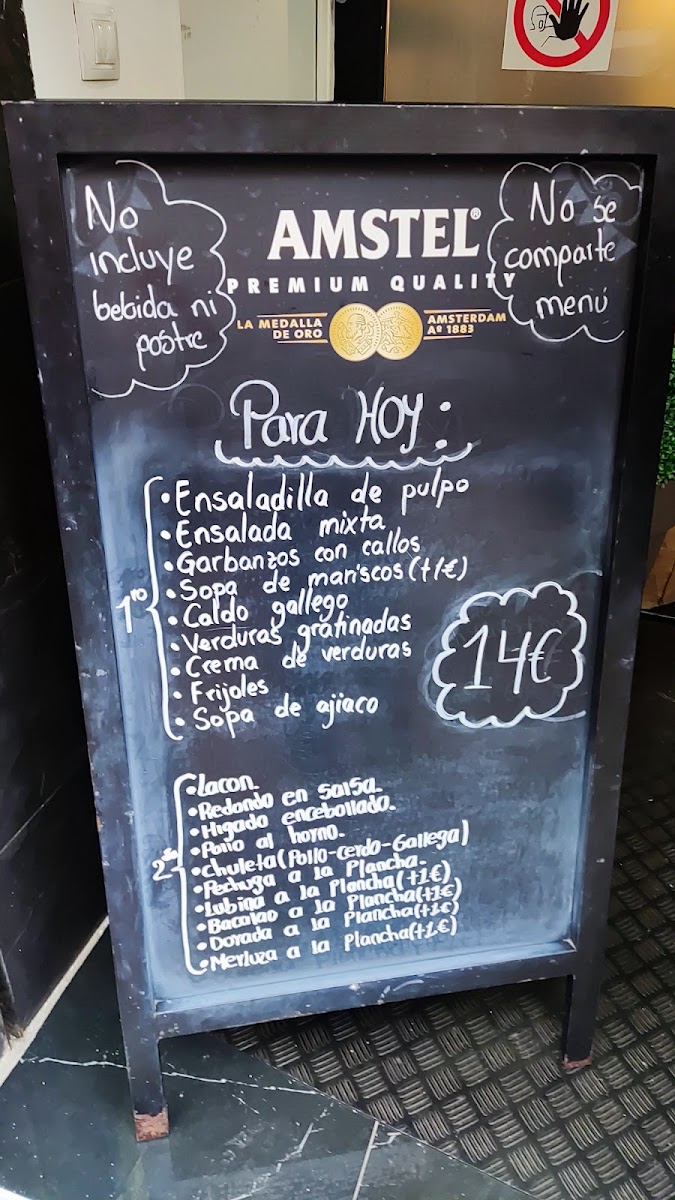 No
incluye
bebida ni
postre
AMSTEL®
PREMIUM QUALITY
LA MEDALLA
DE ORO
AMSTERDAM
Aº 1883
No se
comparte
menú
Para Hoy:
1ro
• Ensaladilla de pulpo
• Ensalada mixta
• Garbanzos con callos
• Sopa de mariscos (+1€)
• Caldo gallego
• Verduras gratinadas
• Crema de verduras
• Frijoles
• Sopa de ajiaco
14€
2do
• Lacon
• Redondo en salsa.
• Higado encebollado.
• Pollo al horno.
• chuleta (Pollo-Cerdo-Gallega)
• Pechuga a la Plancha.
• Lubina a la Plancha (+1€)
• Bacalao a la Plancha (+1€)
• Dorada a la Plancha (+1€)
• Merluza a la Plancha (+1€)